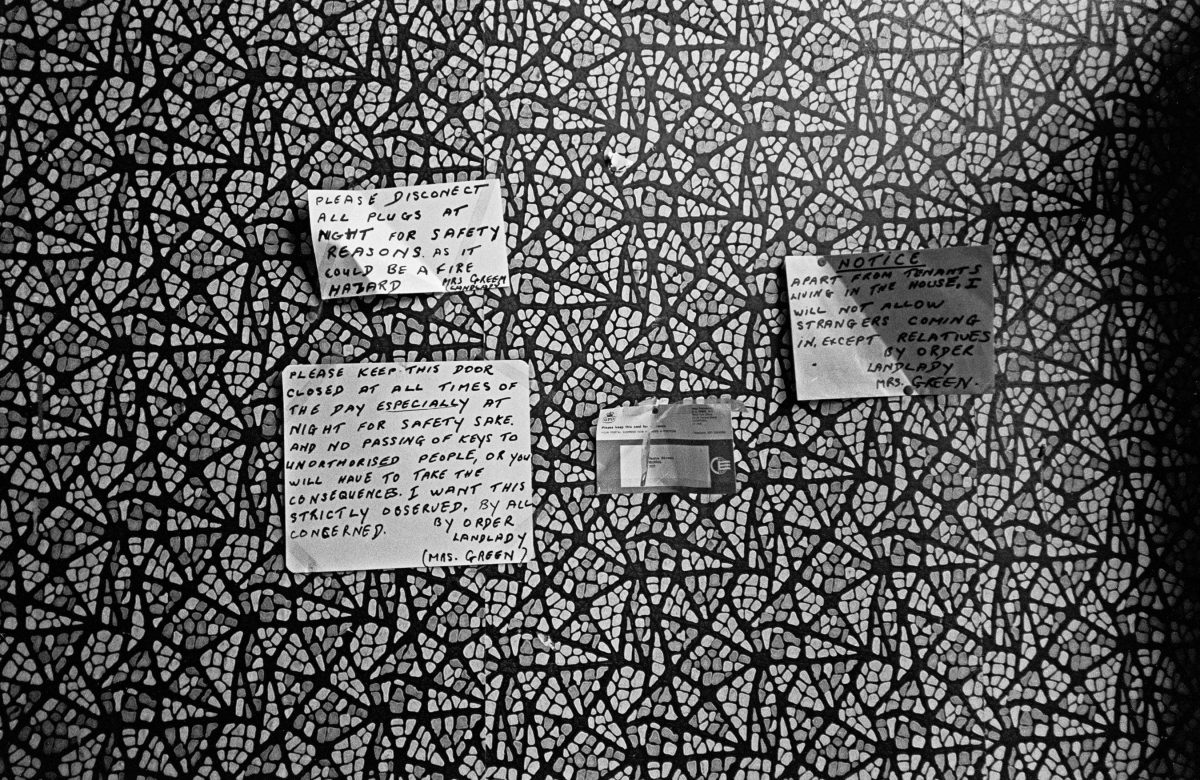 PLEASE DISCONECT
ALL PLUGS AT
NIGHT FOR SAFETY
REASONS. AS IT
COULD BE A FIRE
HAZARD MRS GREEN
(LANDLADY
PLEASE KEEP THIS DOOR
CLOSED AT ALL TIMES OF
THE DAY ESPECIALLY AT
NIGHT FOR SAFETY SAKE.
AND NO PASSING OF KEYS TO
UNORTHORISED PEOPLE, OR YOU
WILL HAVE TO TAKE THE
CONSEQUENCES. I WANT THIS
STRICTLY OBSERVED, BY ALL
CONCERNED. BY ORDER
LANDLADY
(MRS. GREEN)
Please keep this card
NOTICE
APART FROM TENANTS
LIVING IN THE HOUSE, I
WILL NOT ALLOW
STRANGERS COMING
IN, EXCEPT RELATIVES
BY ORDER
LANDLADY
MRS. GREEN.